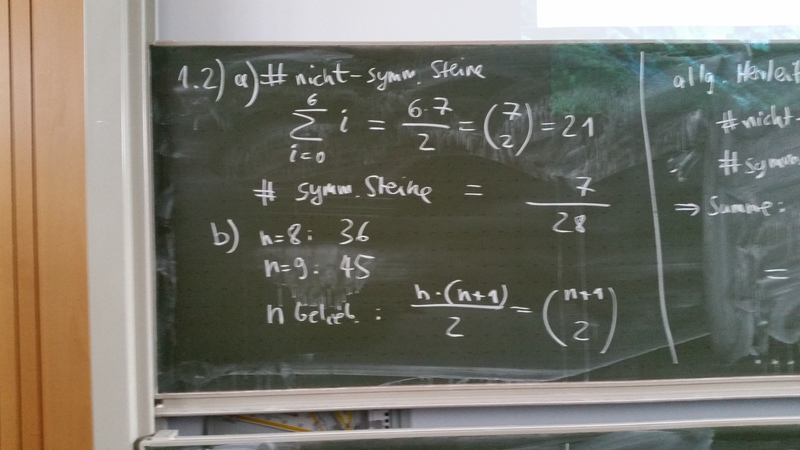 1.2) a) # nicht-symm. Steine
6
∑ i = 6·7/2 = (7 2) = 21
i=0
# symm. Steine = 7
28
b) n=8: 36
n=9: 45
n belieb.: n·(n+1)/2 = (n+1 2)
allg. Herleit
# nicht-
# symm
⇒ Summe:
=